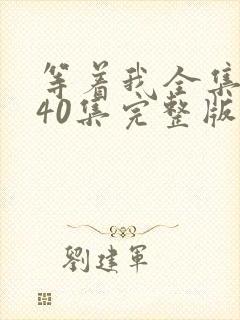 等着我全集
40集完整版
劉建軍